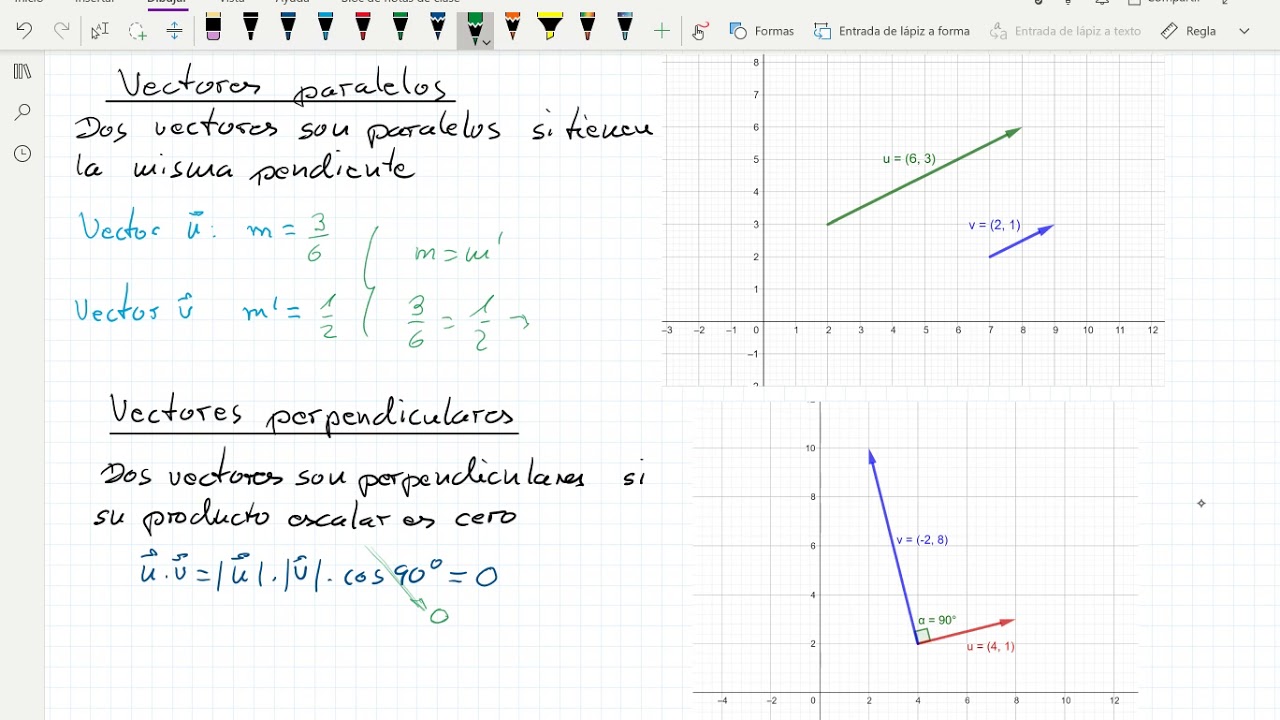 Inicio Insertar Dibujar Vista Ayuda Bloc de notas de clase Compartir
Formas Entrada de lápiz a forma Entrada de lápiz a texto Regla
Vectores paralelos
Dos vectores son paralelos si tienen
la misma pendiente
Vector u⃗: m = 3/6
m = m'
Vector v⃗ m' = 1/2
3/6 = 1/2 →
8
7
6
5
4
3
2
1
−3 −2 −1 0 1 2 3 4 5 6 7 8 9 10 11 12
−1
u = (6, 3)
v = (2, 1)
Vectores perpendiculares
Dos vectores son perpendiculares si
su producto escalar es cero
u⃗ · v⃗ = |u⃗| · |v⃗| · cos 90º = 0
0
10
8
6
4
2
−4 −2 0 2 4 6 8 10 12
v = (-2, 8)
α = 90°
u = (4, 1)